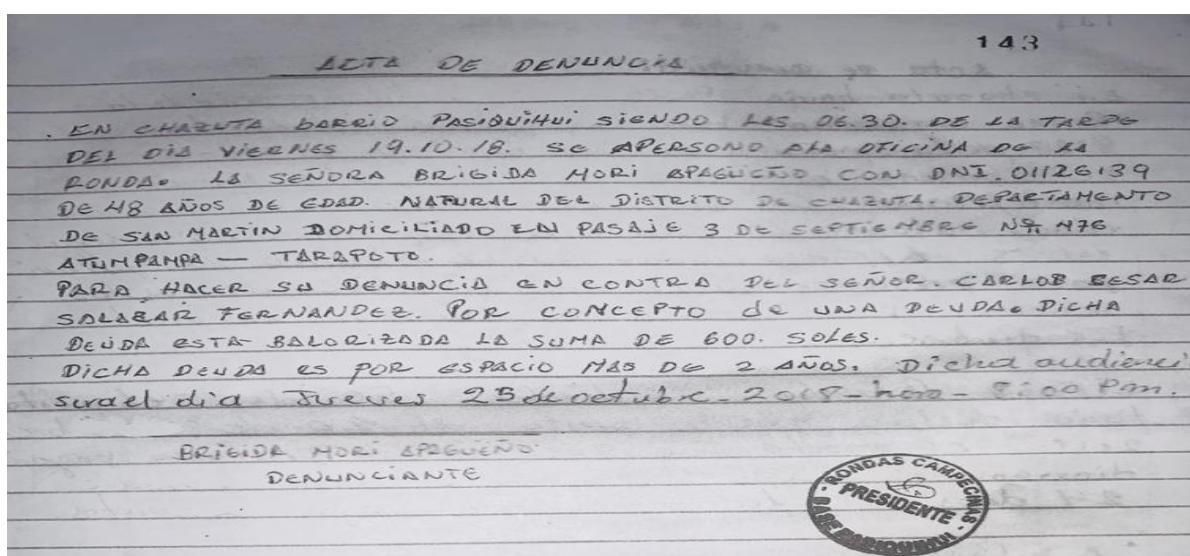 143
ACTA DE DENUNCIA
. EN CHAZUTA BARRIO PASIQUIHUI SIENDO LAS 06.30. DE LA TARDE
DEL DIA VIERNES 19.10.18. SE APERSONO A LA OFICINA DE LA
RONDA. LA SEÑORA BRIGIDA MORI APAGUEÑO CON DNI. 01126139
DE 48 AÑOS DE EDAD. NATURAL DEL DISTRITO DE CHAZUTA. DEPARTAMENTO
DE SAN MARTIN DOMICILIADO EN PASAJE 3 DE SEPTIEMBRE Nº 476
ATUMPAMPA — TARAPOTO.
PARA HACER SU DENUNCIA EN CONTRA DEL SEÑOR. CARLOS CESAR
SALAZAR FERNANDEZ. POR CONCEPTO de UNA DEUDA. DICHA
DEUDA ESTA BALORIZADA LA SUMA DE 600. SOLES.
DICHA DEUDA ES POR ESPACIO MAS DE 2 AÑOS. Dicha audienci
sera el dia Jueves 25 de octubre - 2018 - hora - 8:00 Pm.
BRIGIDA MORI APAGUEÑO
DENUNCIANTE
RONDAS CAMPECINAS
PRESIDENTE
BASE